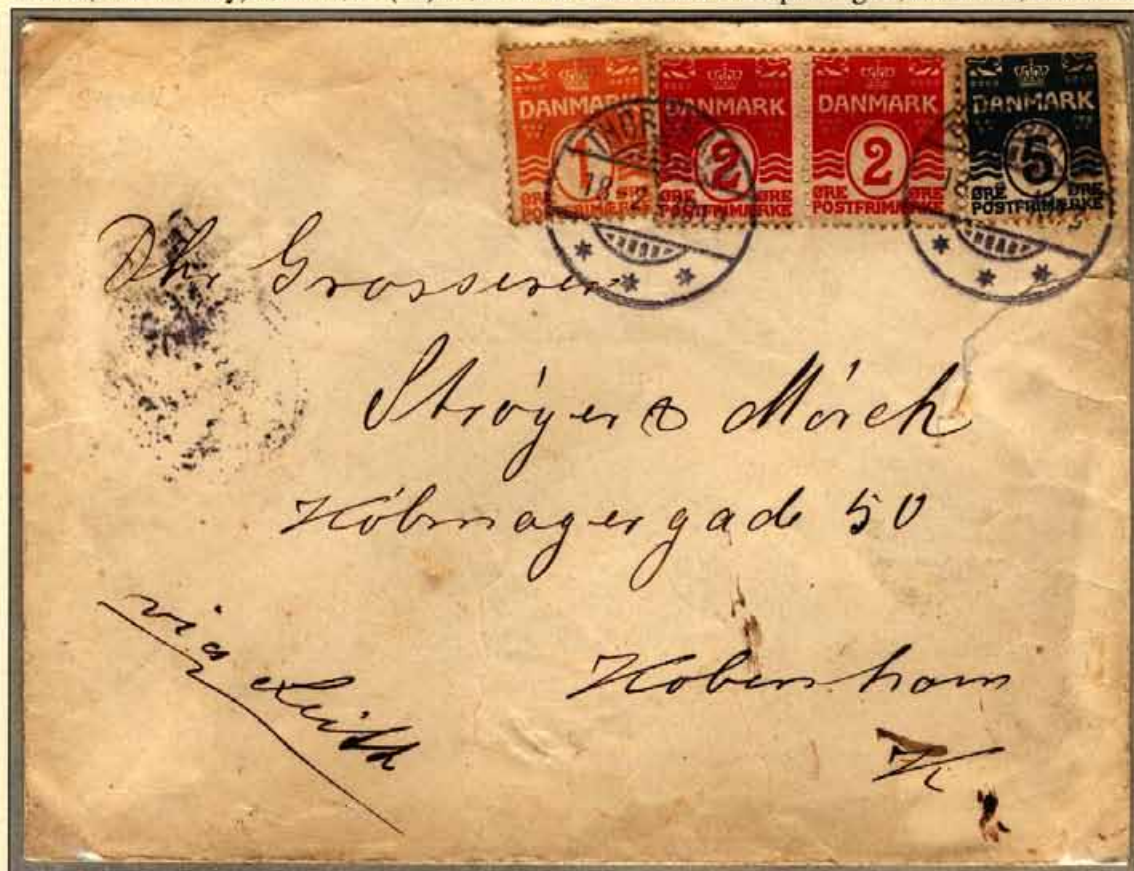 DANMARK 1 ØRE POSTFRIMÆRKE
DANMARK 2 ØRE ØRE POSTFRIMÆRKE
DANMARK 2 ØRE ØRE POSTFRIMÆRKE
DANMARK 5 ØRE ØRE POSTFRIMÆRKE
THOR
18 2
Dhr Grosserer
Strøyer & Mórch
Kóbmagergade 50
via Leith
Kobenham
K